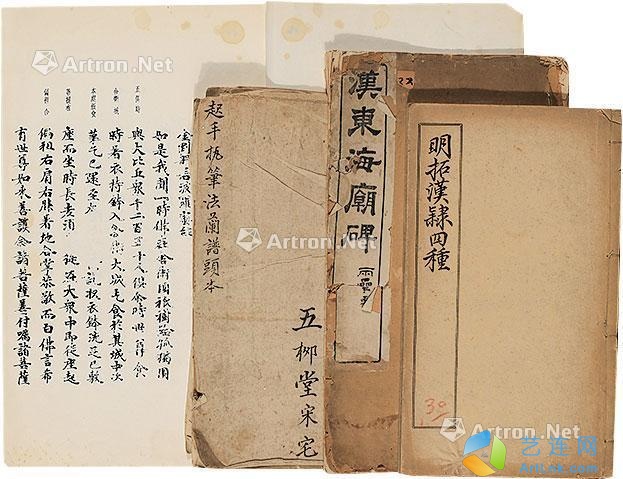 明拓漢隸四種
30
漢東海廟碑
起手执筆法蘭譜頭本
五柳堂宋宅
金剛般若波羅蜜經
如是我聞一時佛在舍衛國祇樹給孤獨園
與大比丘眾千二百五十人俱爾時世尊食
時著衣持鉢入舍衛大城乞食於其城中次
第乞已還至 收衣鉢洗足已敷
座而坐時長老須 在大眾中即從座起
偏袒右肩右膝著地合掌恭敬而白佛言希
有世尊如來善護念諸菩薩善付囑諸菩薩
Artron.Net
Artron.Net
Artron.Net
Artron.Net
Artron.Net
Artron.Net
艺连网